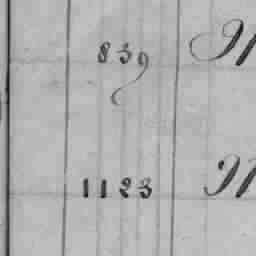 839
1123